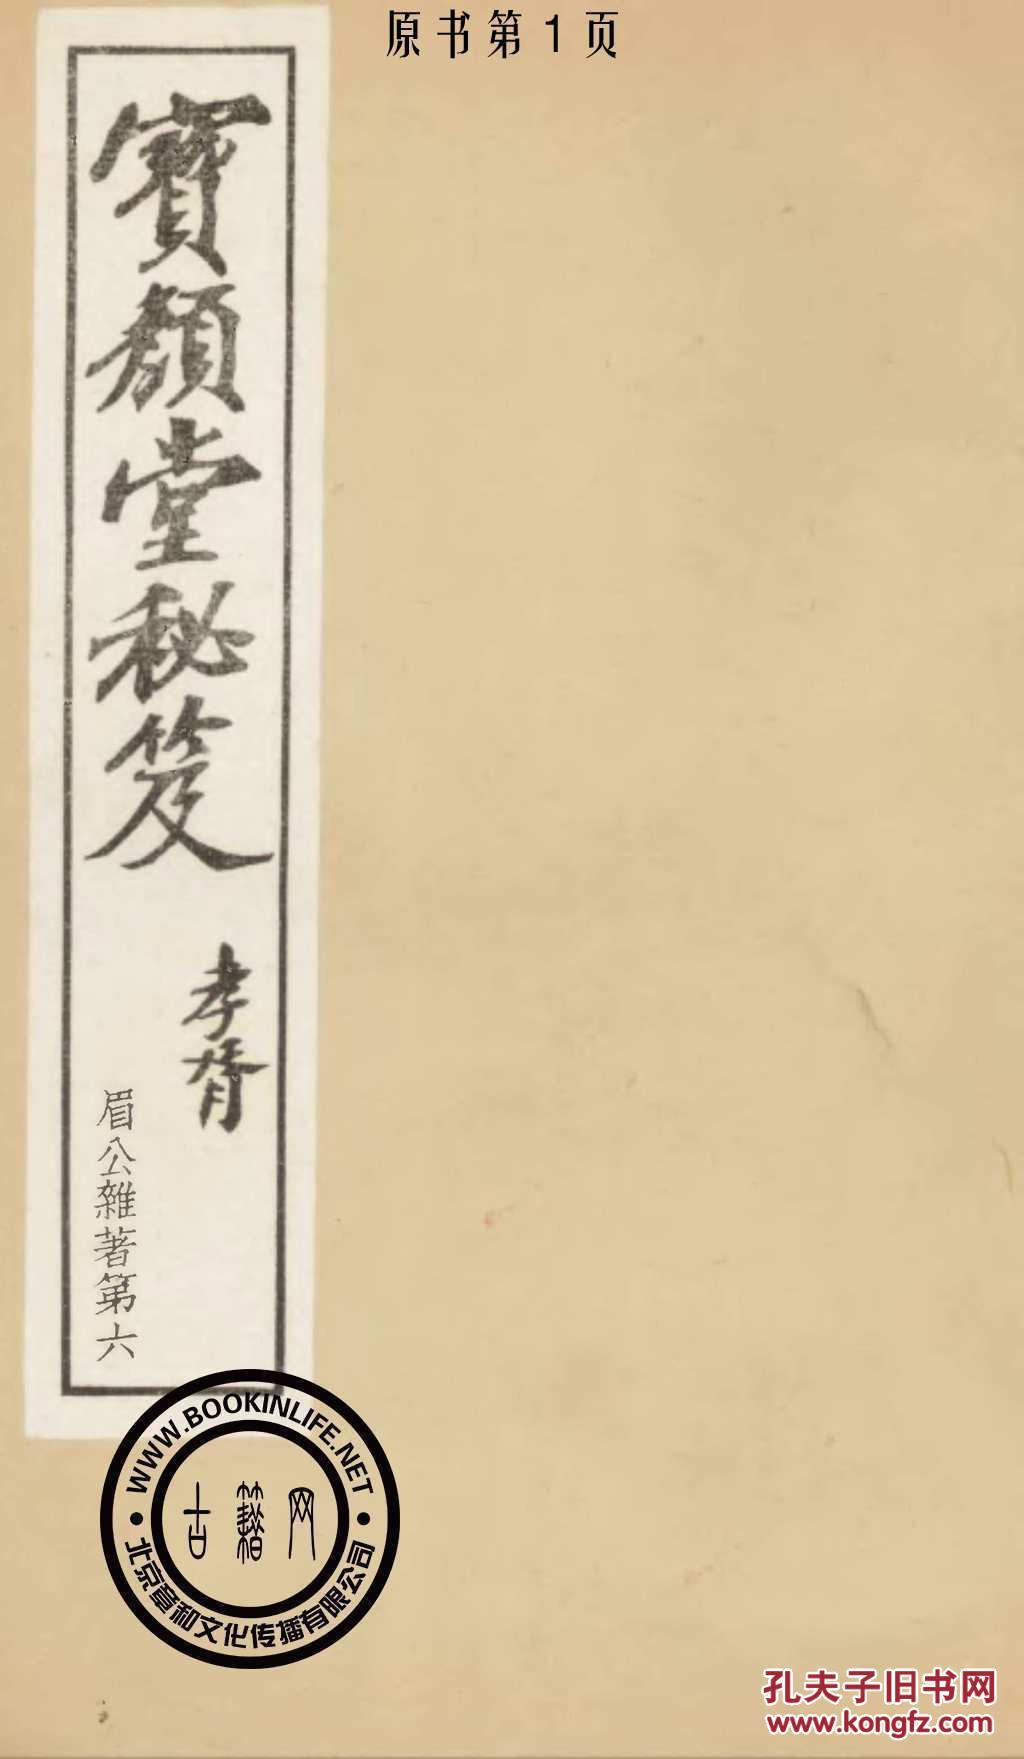 原书第1页
寶顏堂秘笈
孝胥
眉公雜著第六
WWW.BOOKINLIFE.NET
古籍网
北京章和文化传播有限公司
孔夫子旧书网
www.kongfz.com